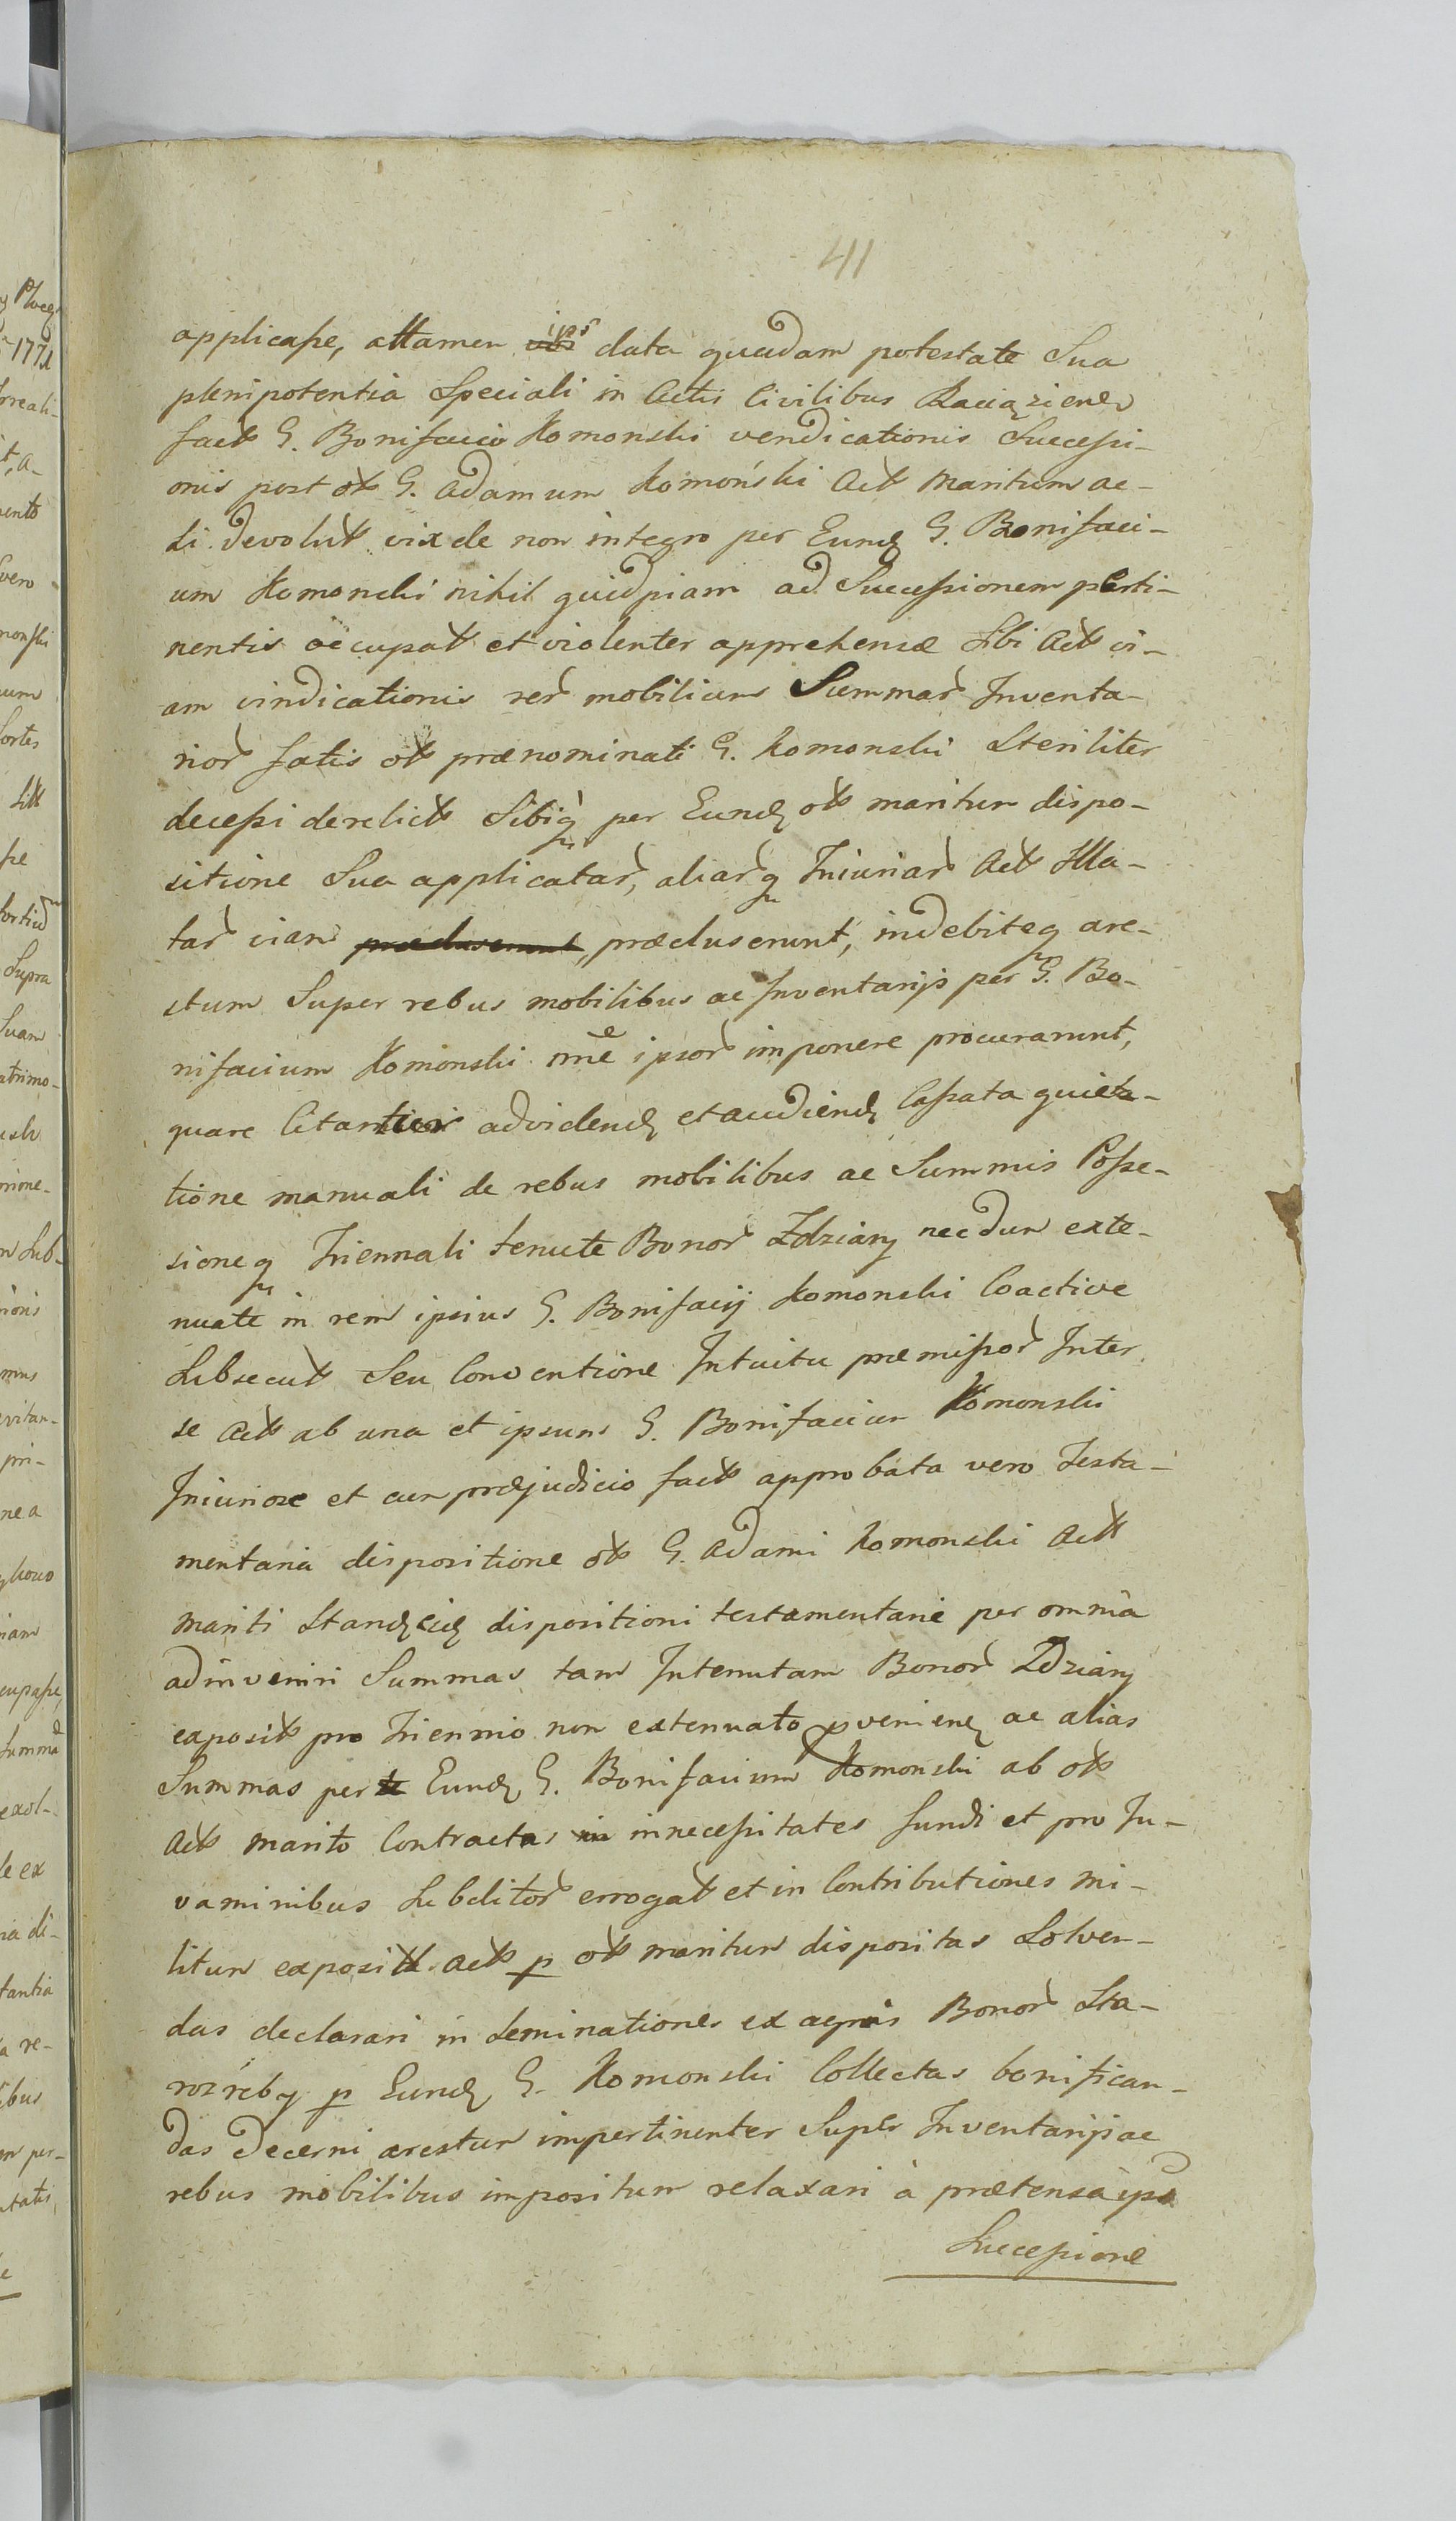 41
applicasse, attamen ipsi data quadam potestate Sua
plenipotentia Speciali in Actis Civilibus Raciązienẽ
fact G. Bonifacio Komonski vendicationis Successi-
onis post ot G. Adamum Komoński Act Maritum ac-
li devolut vix de non integro per Eund G. Bonifaci-
um Komonski nihil quidpiam ad Successionem perti-
nentis occupat et violenter apprehensæ Sibi Act vi-
am vindicationis rer mobilium Summar Inventa-
rior fatis ot prænominati G. Komonski Steriliter
decessi derelict Sibiq per Eund ot maritum dispo-
sitione Sua applicatar, aliarq Iniuriar Act Illa-
tar viam præcluserunt, præcluserunt, indebiteq are-
stum Super rebus mobilibus ac Inventarijs per G. Bo-
nifacium Komonski nne ipsor imponere procurarunt,
quare Citantur advidend et audiend Cassata quieta-
tione manuali de rebus mobilibus ac Summis Posse-
sioneq Triennali tenute Bonor Zdziary necdum exte-
nuate in rem ipsius G. Bonifacij Komonski Coactive
Subsecut Seu Conventione Intuitu præmissor Inter
se Act ab una et ipsum G. Bonifacium Komonski
Iniuriose et cum præjudicio fact approbata vero Testa-
mentaria dispositione ot G. Adami Komonski Act
Mariti Stand eid dispositioni testamentarie per omnia
adinveniri Summas tam Intenutam Bonor Zdziary
exposit pro Triennio non extenuato pvenien ac alias
Summas per Eund G. Bonifacium Komonski ab ot
Act Marito Contractas in innecessitates fundi et pro Ju-
vaminibus Subditor errogat et in Contributiones mi-
litum exposit Act p ot maritum dispositas Solven-
das declarari in Seminationes ex agris Bonor Sta-
rozreby p Eund G. Komonski Collectas bonifican-
das decerni arestum impertinenter Super Inventarijs ac
rebus mobilibus impositum relaxari à prætensa ipso
Successione